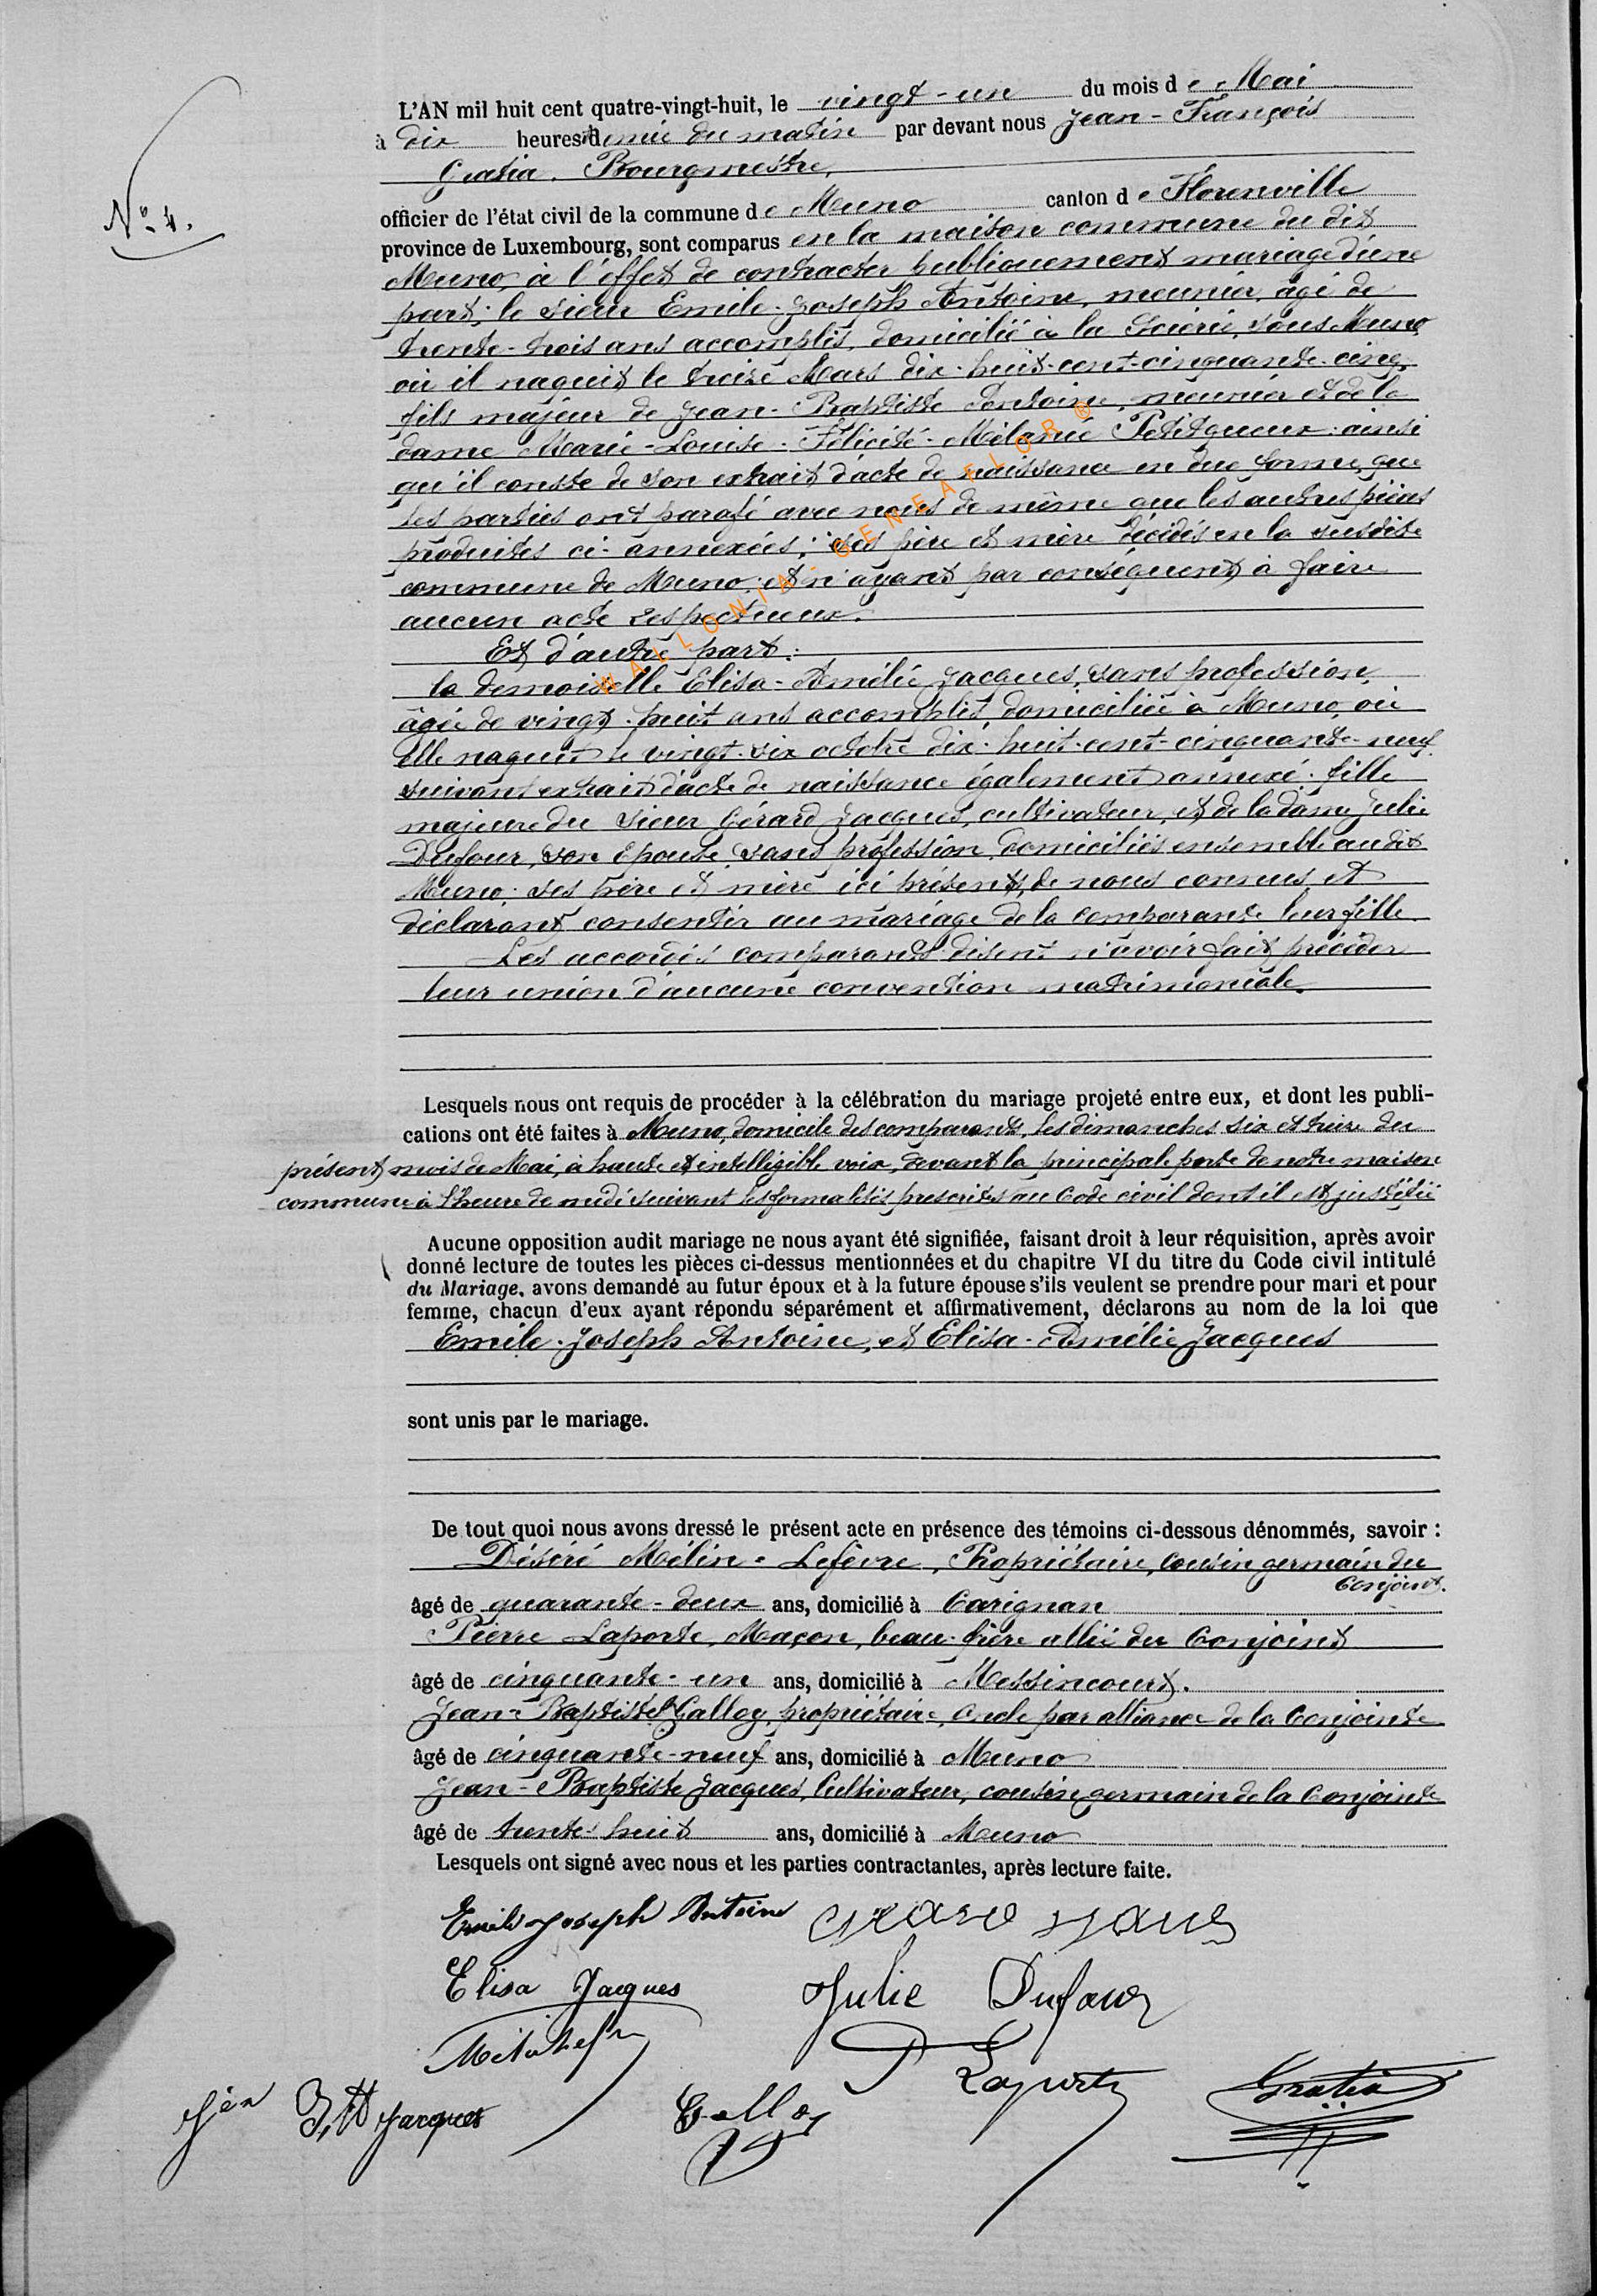 N° 4.
L'AN mil huit cent quatre-vingt-huit, le vingt-un du mois de Mai
à dix heures demie du matin par devant nous Jean-François
Gratia. Bourgmestre,
officier de l'état civil de la commune de Muno canton de Florenville
province de Luxembourg, sont comparus en la maison commune du dit
Muno, à l'effet de contracter publiquement mariage d'une
part; le sieur Emile-Joseph Antoine, meunier, âgé de
trente-trois ans accomplis, domicilié à la Scierie, sous Muno
où il naquit le treize Mars dix-huit-cent-cinquante-cinq,
fils majeur de Jean-Baptiste Antoine, meunier et de la
dame Marie-Louise-Félicité-Mélanie Petitqueux: ainsi
qu'il conste de son extrait d'acte de naissance en due forme, que
les parties ont parafé avec nous de même que les autres pièces
produites ci-annexées; ses père et mère décédés en la susdite
commune de Muno; et n'ayant par conséquent à faire
aucun acte respectueux.
Et d'autre part:
la demoiselle Elisa-Amélie Jacques, sans profession,
âgée de vingt-huit ans accomplis, domiciliée à Muno, où
elle naquit le vingt-six octobre dix-huit-cent-cinquante-neuf
suivant extrait d'acte de naissance également annexé: fille
majeure du sieur Gérard Jacques, cultivateur, et de la dame Julie
Dufour, son épouse, sans profession, domiciliés ensemble audit
Muno; ses père et mère ici présents, de nous connus et
déclarant consentir au mariage de la comparante leur fille.
Les accordés comparants disent n'avoir fait précéder
leur union d'aucune convention matrimoniale.
Lesquels nous ont requis de procéder à la célébration du mariage projeté entre eux, et dont les publi-
cations ont été faites à Muno, domicile des comparants, les dimanches six et treize du
présent mois de Mai, à haute et intelligible voix, devant la principale porte de notre maison
commune à l'heure de midi suivant les formalités prescrites au Code civil dont il est justifié
Aucune opposition audit mariage ne nous ayant été signifiée, faisant droit à leur réquisition, après avoir
donné lecture de toutes les pièces ci-dessus mentionnées et du chapitre VI du titre du Code civil intitulé
du Mariage, avons demandé au futur époux et à la future épouse s'ils veulent se prendre pour mari et pour
femme, chacun d'eux ayant répondu séparément et affirmativement, déclarons au nom de la loi que
Emile-Joseph Antoine, et Elisa-Amélie Jacques
sont unis par le mariage.
De tout quoi nous avons dressé le présent acte en présence des témoins ci-dessous dénommés, savoir :
Désiré Mélin-Lefèvre, Propriétaire, Cousin germain du
Conjoint.
âgé de quarante-deux ans, domicilié à Carignan
Pierre Laporte, Maçon, beau-frère allié du Conjoint
âgé de cinquante-un ans, domicilié à Messincourt.
Jean-Baptiste Galloy, propriétaire, Oncle par alliance de la Conjointe
âgé de cinquante-neuf ans, domicilié à Muno
Jean-Baptiste Jacques, Cultivateur, cousin germain de la Conjointe
âgé de trente-huit ans, domicilié à Muno
Lesquels ont signé avec nous et les parties contractantes, après lecture faite.
Emile Joseph Antoine
Elisa Jacques Julie Dufour
P Laporte Gratia
Jean Btte Jacques Galloy
WALLONIA-GENEAFLOR ®